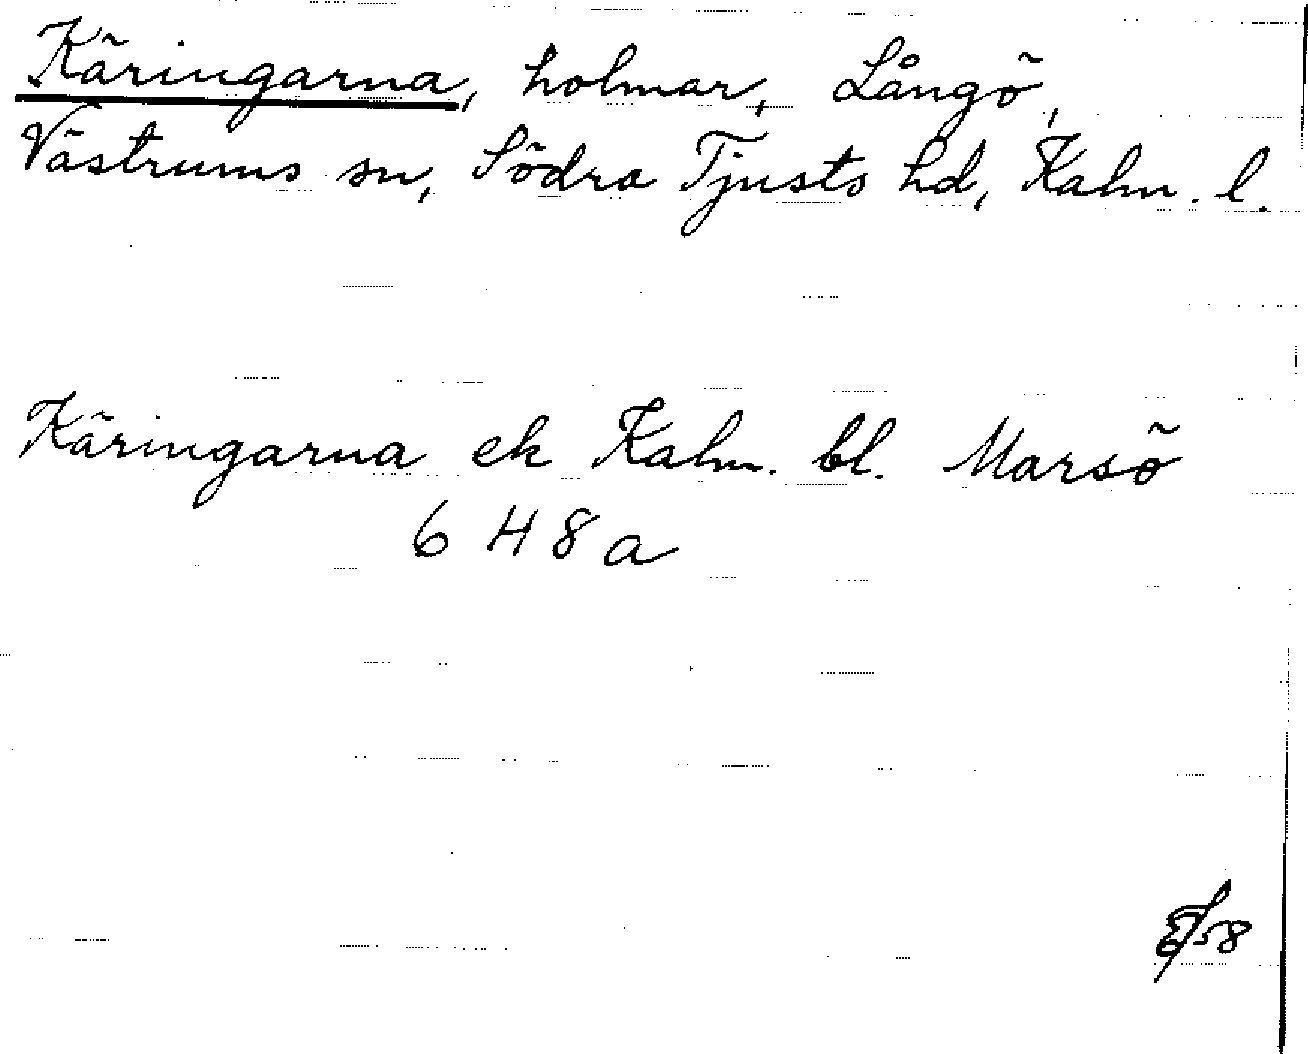 Käringarna, holmar, Långö,
Västrums sn, Södra Tjusts hd, Kalm. l.
Käringarna ek Kalm. bl. Marsö
6 H 8 a
58